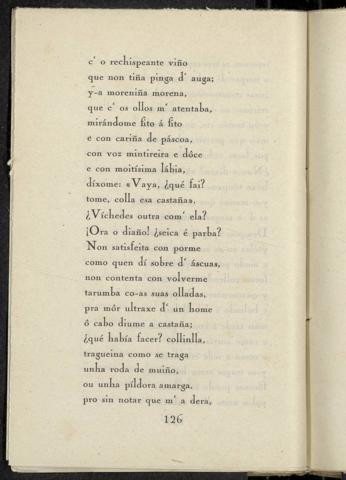 c' o rechispeante viño
que non tiña pinga d' auga;
y-a moreniña morena,
que c' os ollos m' atentaba,
mirándome fito á fito
e con cariña de páscoa,
con voz mintireira e dôce
e con moitísima lábia,
díxome: «Vaya, ¿qué fai?
tome, colla esa castaña»,
¿Víchedes outra com' ela?
¡Ora o diaño! ¿seica é parba?
Non satisfeita con porme
como quen dí sobre d' áscuas,
non contenta con volverme
tarumba co-as suas olladas,
pra môr ultraxe d' un home
ô cabo diume a castaña;
¿qué había facer? collinlla,
tragueina como se traga
unha roda de muiño,
ou unha píldora amarga,
pro sin notar que m' a dera,
126